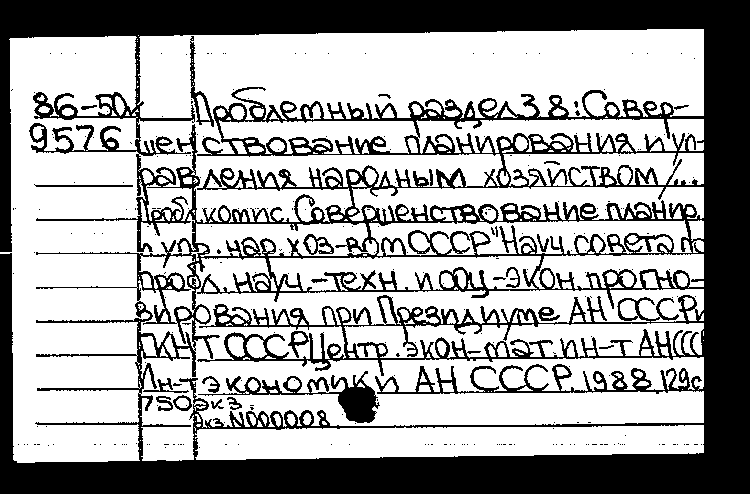 86-50к Проблемный раздел 3.8: Совер-
9576 шенствование планирования и уп-
равления народным хозяйством /...
Пробл. комис. "Совершенствование планир.
и упр. нар. хоз-вом СССР" Науч. совета по
пробл. науч.-техн. и соц.-экон. прогно-
зирования при Президиуме АН СССР и
ГКНТ СССР, Центр. экон.-мат. ин-т АН СССР
Ин-т экономики АН СССР. 1988. 129с
750 экз.
Экз. N000008